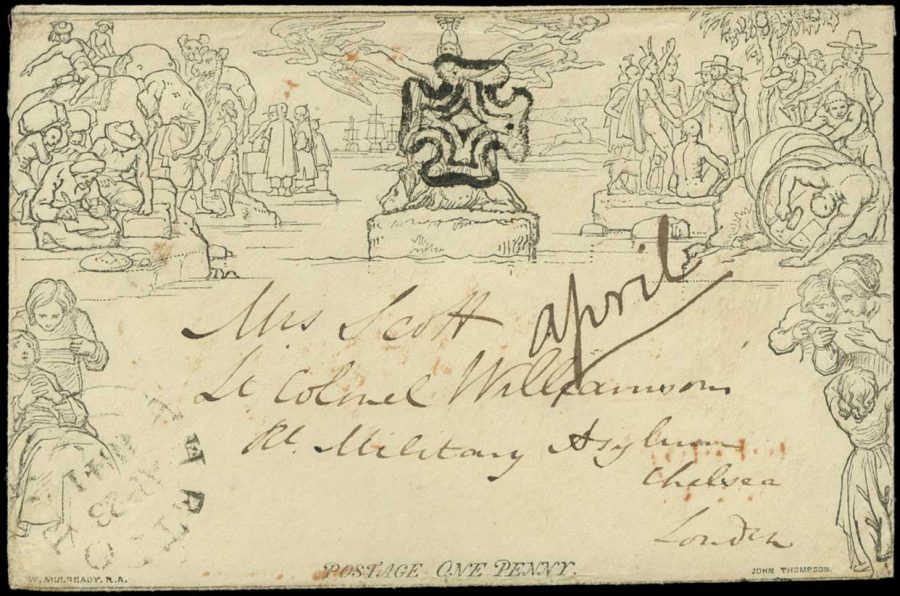 Mrs Scott
april
Lt Colonel Williamson
Rl. Military Asylum
Chelsea
London
POSTAGE ONE PENNY.
W. MULREADY, R.A.
JOHN THOMPSON.